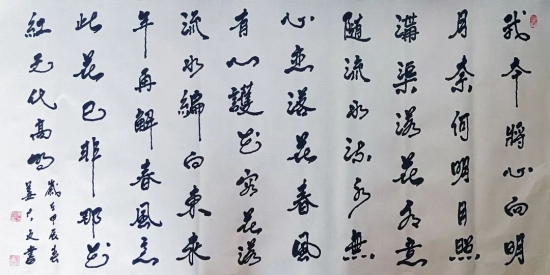 我本將心向明
月奈何明月照
溝渠落花有意
隨流水流水無
心戀落花春風
有心護花容花落
流水編向東來
年再解春風意
此花已非那花
紅元代高明
歲在甲辰春
姜文書